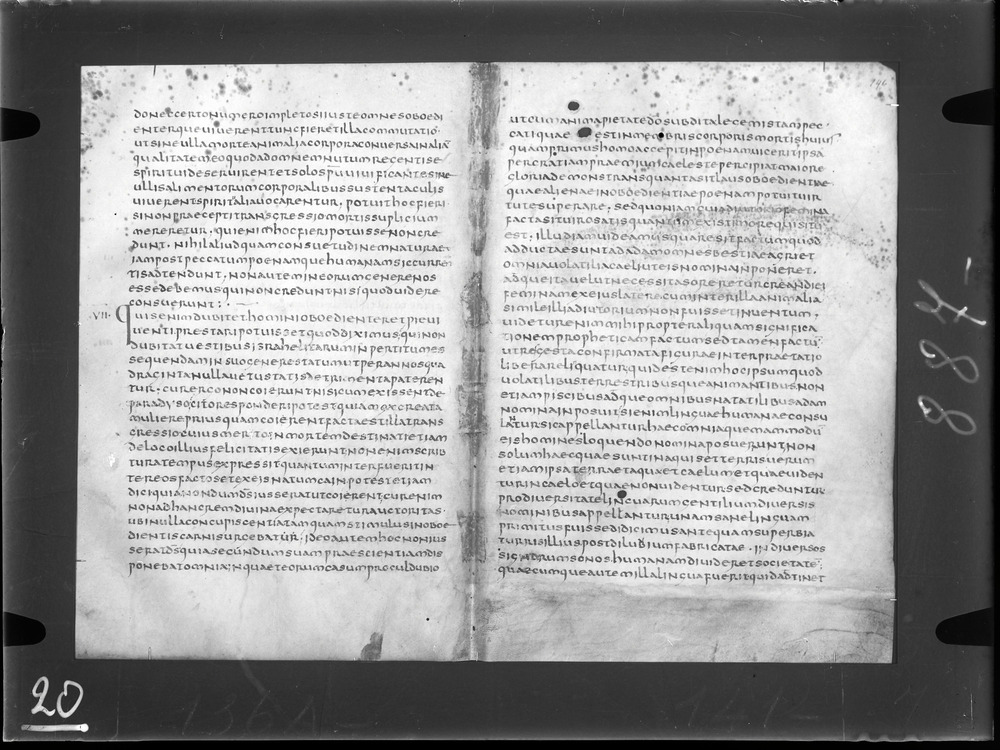 donec certo numero impleto si iuste omnes oboedi
enterque uiuerent tunc fieret illa commutatio
ut sine ulla morte animalia corpora conuersa in aliā
qualitatem eo quod ad omnem nutum regenti se
spiritui deseruirent et solo spū uiuificante sine
ullis alimentorum corporalibus sustentaculis
uiuerent spiritalia uocarentur, potuit hoc fieri
si non praecepti transgressio mortis suplicium
mereretur. qui enim hoc fieri potuisse non cre
dunt. nihil aliud quam consuetudinem naturae
iam post peccatum poenamque humanam sic curren
tis adtendunt, non autem in eorum genere nos
esse debemus qui non credunt nisi quod uidere
consuerunt:
·VII· Quis enim dubitet homini oboedienter et pie ui
uenti prestari potuisset quod diximus, qui non
dubitat uestibus israhelitarum inpertitum es
se quendam in suo genere statum ut per annos qua
draginta nulla uetustatis detrimenta pateren
tur. cur ergo non coierunt nisi cum exissent de
paradyso cito responderi potest quia mox creata
muliere priusquam coierent facta est illa trans
gressio cuius merito in mortem destinati etiam
de loco illius felicitatis exierunt non enim scrib
tura tempus expressit quantum interfuerit in
ter eos factos et ex eis natum cain potest etiam
dici quia nondum d̄s iusserat ut coierent cur enim
non ad hanc rem diuina expectaretur auctoritas.
ubi nulla concupiscentia tamquam stimulus inoboe
dientis carnis urgebatur; ideo autem hoc non ius
serat d̄s quia secundum suam praescientiam dis
ponebat omnia; in qua et eorum casum procul dubio
146
ut cum anima pietate dō subdita lege mista pec
cati quae est in membris corporis mortis huius
quam primus homo accepit in poenam uicerit ipsa
per gratiam praemium caeleste percipiat maiore
gloria demonstrans quanta sit laus oboedientiae
quae alienae inoboedientiae poenam potuit uir
tute superare. sed quoniam cui adiutorio femina
facta sit uiro satis quantum existimo requisitū
est, illud iam uideamus quare sit factum quod
adductae sunt ad adam omnes bestiae agri et
omnia uolatilia caeli ut eis nomina inponeret.
adque ita uelut necessitas oreretur creandi ei
feminam ex eius latere cum inter illa animalia
simile illi adiutorium non fuisset inuentum,
uidetur enim mihi propter aliquam significa
tionem propheticam factum sed tamen factū
ut re gesta confirmata figurae interpraetatio
libera relinquatur quid est enim hoc ipsum quod
uolatilibus terrestribusque animantibus non
etiam piscibus adque omnibus natatilibus adam
nomina inposuit si enim linguae humanae consu
lantur sic appellantur haec omnia quemammodū
eis homines loquendo nomina posuerunt, non
solum haec quae sunt in aquis et terris uerum
etiam ipsa terra et aqua et caelum et quae uiden
tur in caelo et quae non uidentur sed creduntur
pro diuersitate linguarum gentilium diuersis
nominibus appellantur unam sane linguam
primitus fuisse didicimus antequam superbia
turris illius post diluuium fabricatae. in diuersos
signorum sonos humanam diuideret societatē;
quaecumque autem illa lingua fuerit quid adtinet
20
8887-